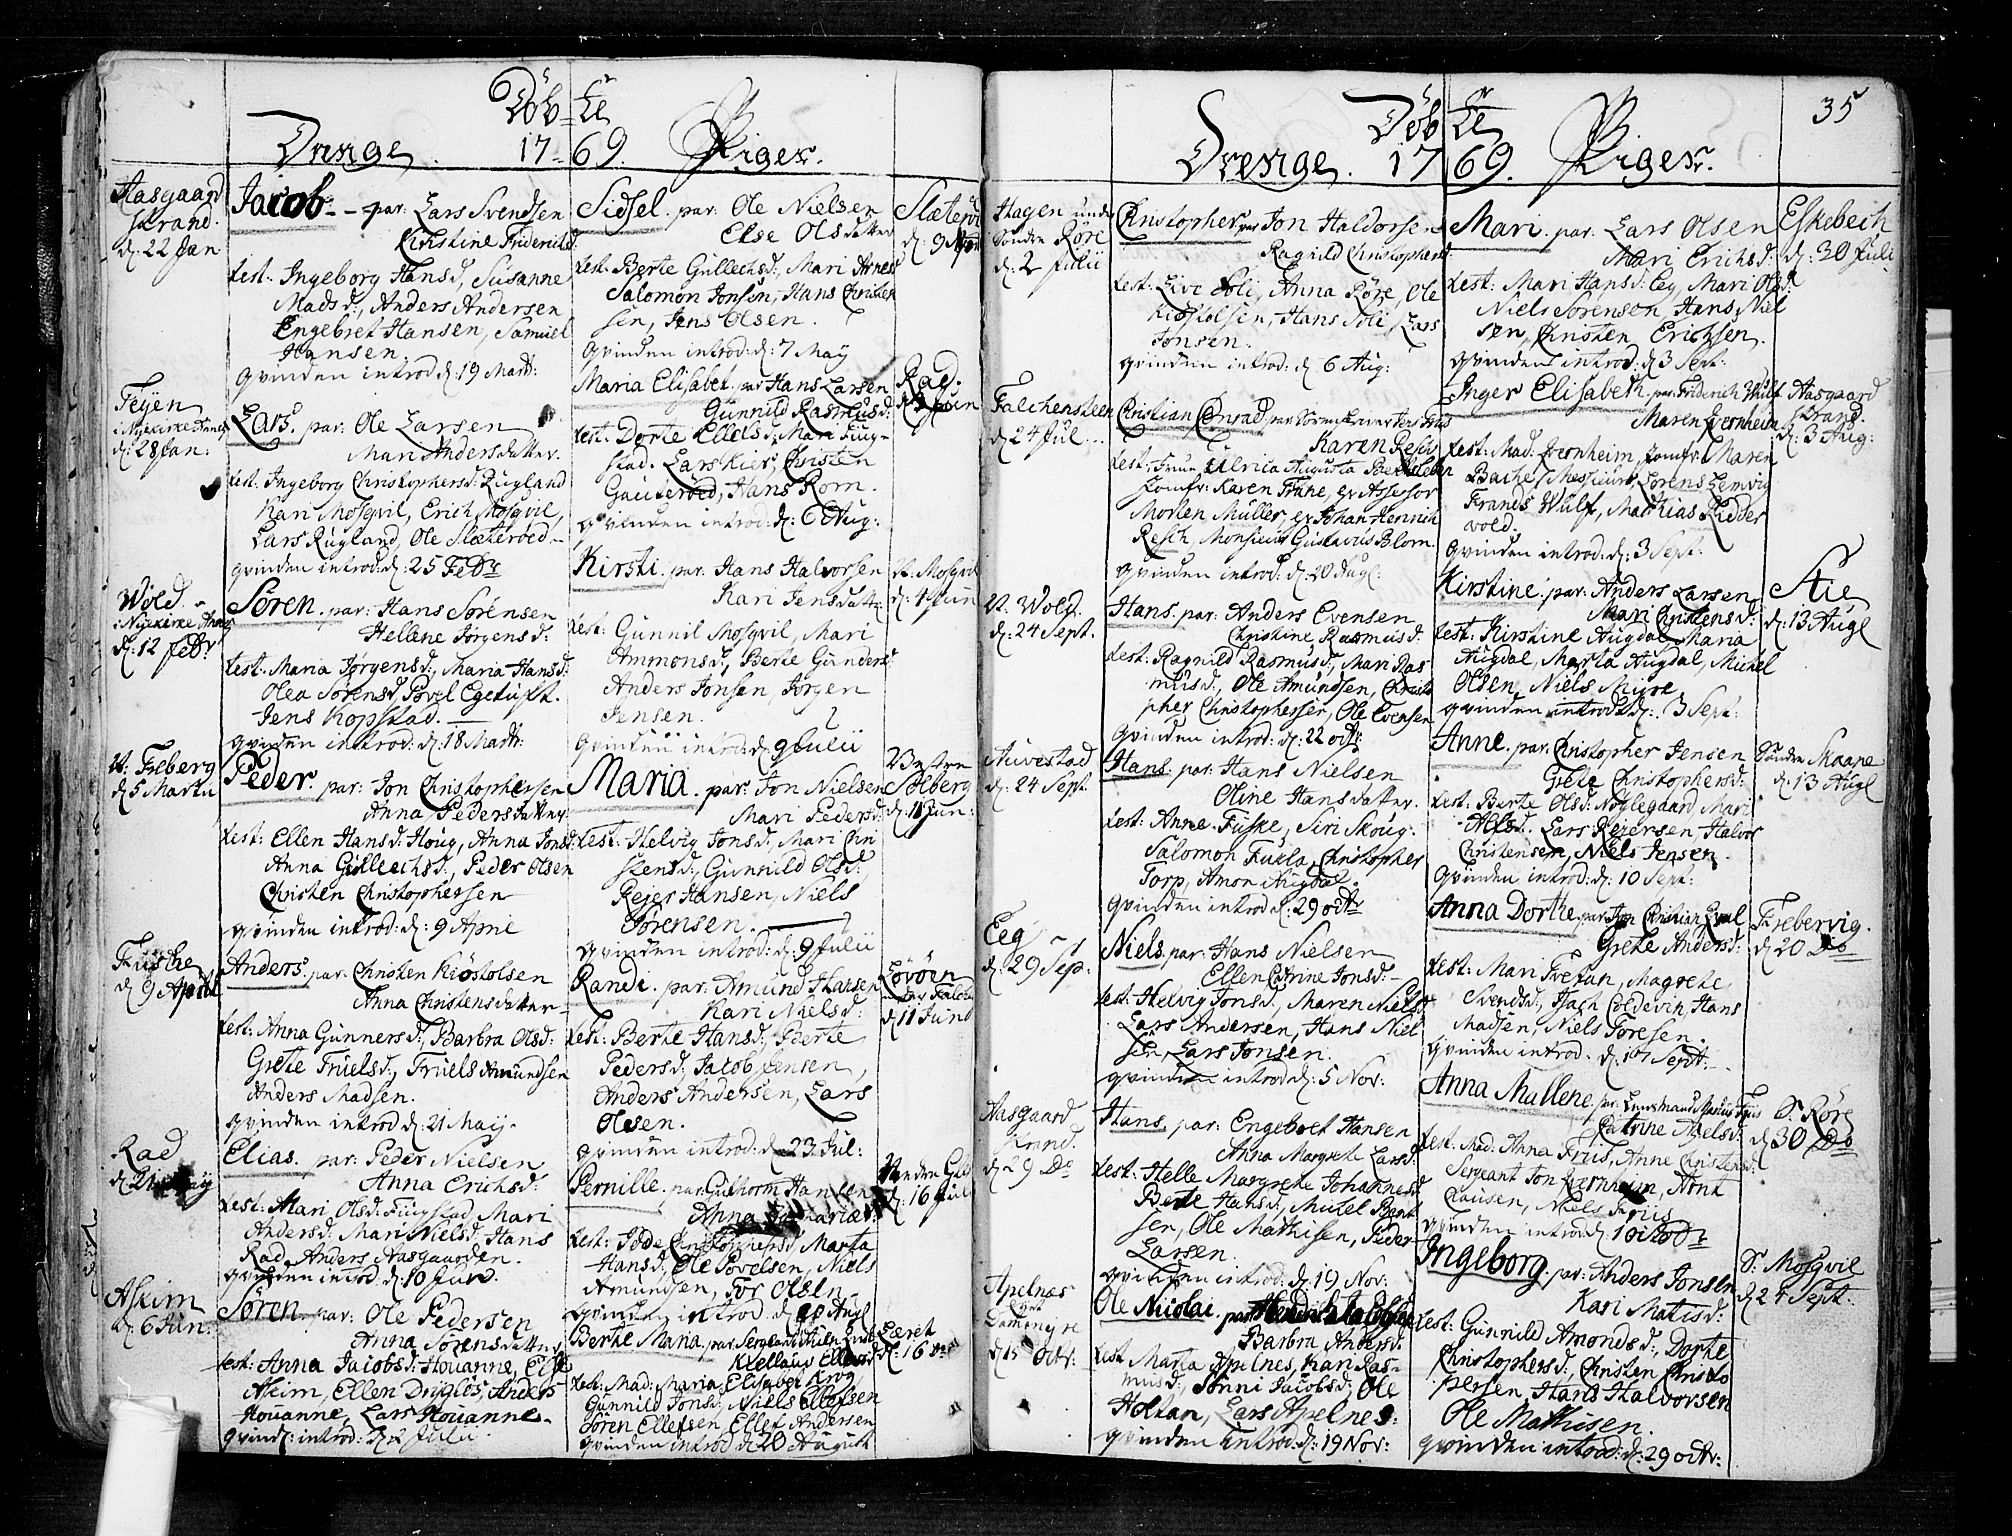 Døbte
Drenge. 1769. Piger.
Aasgaard
strand.
d: 22 Jan
Jacob - par: Lars Svendsen
Kirstine Friderichsd:
test: Ingeborg Hansd, Susanne
Madsd:, Anders Andersen
Engebret Hansen, Samuel
Hansen.
qvinden introd: d: 19 Marti:
Teÿen
i Nyekirke Annex
d: 28 Jan:
Lars. par: Ole Larsen
Mari Andersdatter.
test. Ingeborg Christophersd: Rugland
Kari Mosqvil, Erich Mosqvil,
Lars Rugland, Ole Slæterøed.
qvinden introd: d: 25 Febr
Wold.
i Nyekirke Annex
d: 12 Febr
Søren. par: Hans Sørensen
Hellene Jørgensd:
test: Maria Jørgensd:, Maria Hansd:
Olea Sørensd, Povel Egetuft.
Jens Kopstad.
qvinden introd: d: 18 Marti:
V: Freberg
d: 5 Martii
Peder. par: Jon Christophersen
Anna Pedersdatter
test: Ellen Hansd: Houg, Anna Jonsd:
Anna Gullechsd:, Peder Olsen
Christen Christophersen
qvinden introd: d: 9 April
Fuske
d: 9 April
Anders. par: Christen Kiøstolsen
Anna Christensdatter
test: Anna Gunnersd:, Barbra Olsd:
Grete Truelsd:, Truels Amundsen
Anders Madsen.
qvinden introd d: 21 May.
Rad
d: 21 May
Elias. par: Peder Nielsen
Anna Erichsd:
test: Mari Olsd: Fuugstad, Mari
Andersd: Mari Nielsd: Hans
Rad, Anders Aasgaarden.
qvinden introd: d: 10 Jun.
Askim
d: 6 Jun:
Søren par: Ole Pedersen
Anna Sørensdatter
test: Anna Jacobsd: Houanne, Else
Askim, Ellen Dugles, Anders
Houanne, Lars Houanne
qvind: introd: d: 2 Julii
Sidsel. par: Ole Nielsen
Else Olsdatter
test: Berte Gullechsd:, Mari Arnesd
Salomon Jonsen, Hans Christen
sen, Jens Olsen.
qvinden introd: d: 7 May
Slæterød
d: 9 April
Maria Elisabet. par Hans Larsen
Gunnild Rasmusd:
test: Dorte Ellefsd:, Mari Fuug
stad. Lars Kier, Christen
Gauterød, Hans Rorn.
qvinden introd: d: 6 Aug:
Rad.
Jun
Kirsti. par: Hans Halvorsen
Kari Jensdatter
test: Gunnil Mosqvil, Mari
Ammonsd, Berte Gundersd
Anders Jonsen, Jørgen
Jensen.
qvinden introd: d: 9 Julii
V. Mosqvil
d: 4 Jun
Maria. par: Jon Nielsen
Mari Pedersd:
test: Helvig Jonsd:, Mari Chri
stensd:, Gunnild Olsd:,
Rejer Hansen, Niels
Sørensen.
qvinden introd: d: 9 Julii
Vestre
Solberg
d: 11 Jun:
Randi. par: Amund Hansen
Kari Nielsd:
test: Berte Hansd:, Berte
Pedersd:, Jacob Jensen,
Anders Andersen, Lars
Olsen.
qvinden introd: d: 23 Jul:
Løvøen
d: 11 Junii
Pernille. par: Gulhorm Hansen
Anna
test: Idde Christophersd, Marta
Hansd:, Ole Povelsen, Niels
Amundsen, Tor Olsen
qvinden introd d: 20 Augl
d: 16 Jul
Berte Maria, par: Sergeant
Ellevsd
test: Mad: Maria Elisabet Krog,
Gunnild Jonsd:, Niels Ellefsen
Søren Ellefsen, Ellef Andersen
qvinden introd d: 20 August
Læret
d: 16
35
Døbte
Drenge. 1769. Piger.
Hagen under
Søndre Røre
d: 2 Julii
Christopher, par Jon Haldorsen
Ragnild Christophersd
test: Live Soli, Anna Røre, Ole
Kiøstolsen, Hans Soli, Lars
Jonsen.
qvinden introd: d: 6 Aug:
Falchensteen
d: 24 Jul
Christian Conrad, par
Karen Resch
test: Fruu Ulrica Augusta
Jomfr: Karen Trane, Hr Assessor
Morten Müller, Hr Johan Henrich
Resch, Monsieur Gustavus Blom.
qvinden introd: d: 20 Augl:
V. Wold.
d: 24 Sept.
Hans. par: Anders Evensen
Christine Rasmusd:
test: Ragnild Rasmusd:, Mari Ras
musd:, Ole Amundsen, Christo
pher Christophersen, Ole Evensen
qvinden introd: d: 22 octr
Auvestad
d: 24 Sept.
Hans. par: Hans Nielsen
Oline Hansdatter.
test: Anne Fuske, Siri Skoug.
Salomon Fukla, Christopher
Torp, Amon Augdal.
qvinden introd d: 29 octr
Eeg
d: 29 Sep:
Niels. par: Hans Nielsen
Ellen Catrine Jonsd:
test: Helvig Jonsd:, Maren Nielsd
Lars Andersen, Hans Niel
sen, Lars Jonsen.
qvinden introd d: 5 Nov:
Aasgaard
strand.
d: 29 Do
Hans. par: Engebret Hansen
Anna Margrete Larsd:
test: Helle Margrete Johannesd
Berte Hansd:, Mickel Bent
sen, Ole Mathisen, Peder
Larsen.
qvinden introd: d: 19 Nov:
Apelnæs
d: 15 Octr:
Ole Nicolai, par:
Barbra Andersd:
test Marta Apelnes, Kari Ras-
musd:, Sønni Jacobsd:, Ole
Holtan, Lars Apelnes:
qvinden introd: d: 19 Nov:
Mari. par: Lars Olsen
Mari Erichsd:
test: Mari Hansd: Eeg, Mari Olsd:
Niels Sørensen, Hans Niel
sen, Christen Erichsen.
qvinden introd: d: 3 Sept:
Eskebech
d: 30 Juli
Inger Elisabeth. par: Friderich Wulf
Maren Evernheim
test: Mad. Evernheim, Jomfr: Maren
Bache, Messieurs Lorens Lemvig
Frands Wulf, Mathias Ridder
vold.
qvinden introd: d: 3 Sept.
Aasgaard
strand.
d: 3 Aug:
Kirstine. par: Anders Larsen
Mari Christensd:
test: Kirstine Augdal, Maria
Augdal, Marta Augdal, Mickel
Olsen, Niels Myre.
qvinden introd: d: 3 Sept:
Stie
d: 13 Augl
Anne. par: Christopher Jensen
Grete Christophersd:
test: Berte Olsd: Nøglegaard, Mari
Alfsd. Lars Rejersen, Halvor
Christensen, Niels Jensen.
qvinden introd: d: 10 Sept:
Søndre Skaane
d: 13 Augl
Anna Dorthe, par Jon Christian
Grete Andersd:
test: Mari Tvetan, Magrete
Svendsd:, Isach Coldevin, Hans
Madsen, Niels Toresen.
qvinden introd: d: 17 Sept:
Frebervig.
d: 20 Do
Anna Mallene. par: Lensmand
Catrine Axelsd:
test: Mad: Anna Friis, Anne Christensd:
Sergeant Jon Evernheim, Arnt
Clausen, Niels Friis
qvinden introd: d: 1 octobr
Sr Røre
d: 30 Do
Ingeborg. par: Anders Jonsen
Kari Matisd:
test: Gunnild Amondsd:, Dorte
Christophersd:, Christen Christo
persen, Hans Halvorsen
Ole Mathisen.
qvinden introd: d: 29 octr:
Sr Mosqvil
d: 24 Sept.